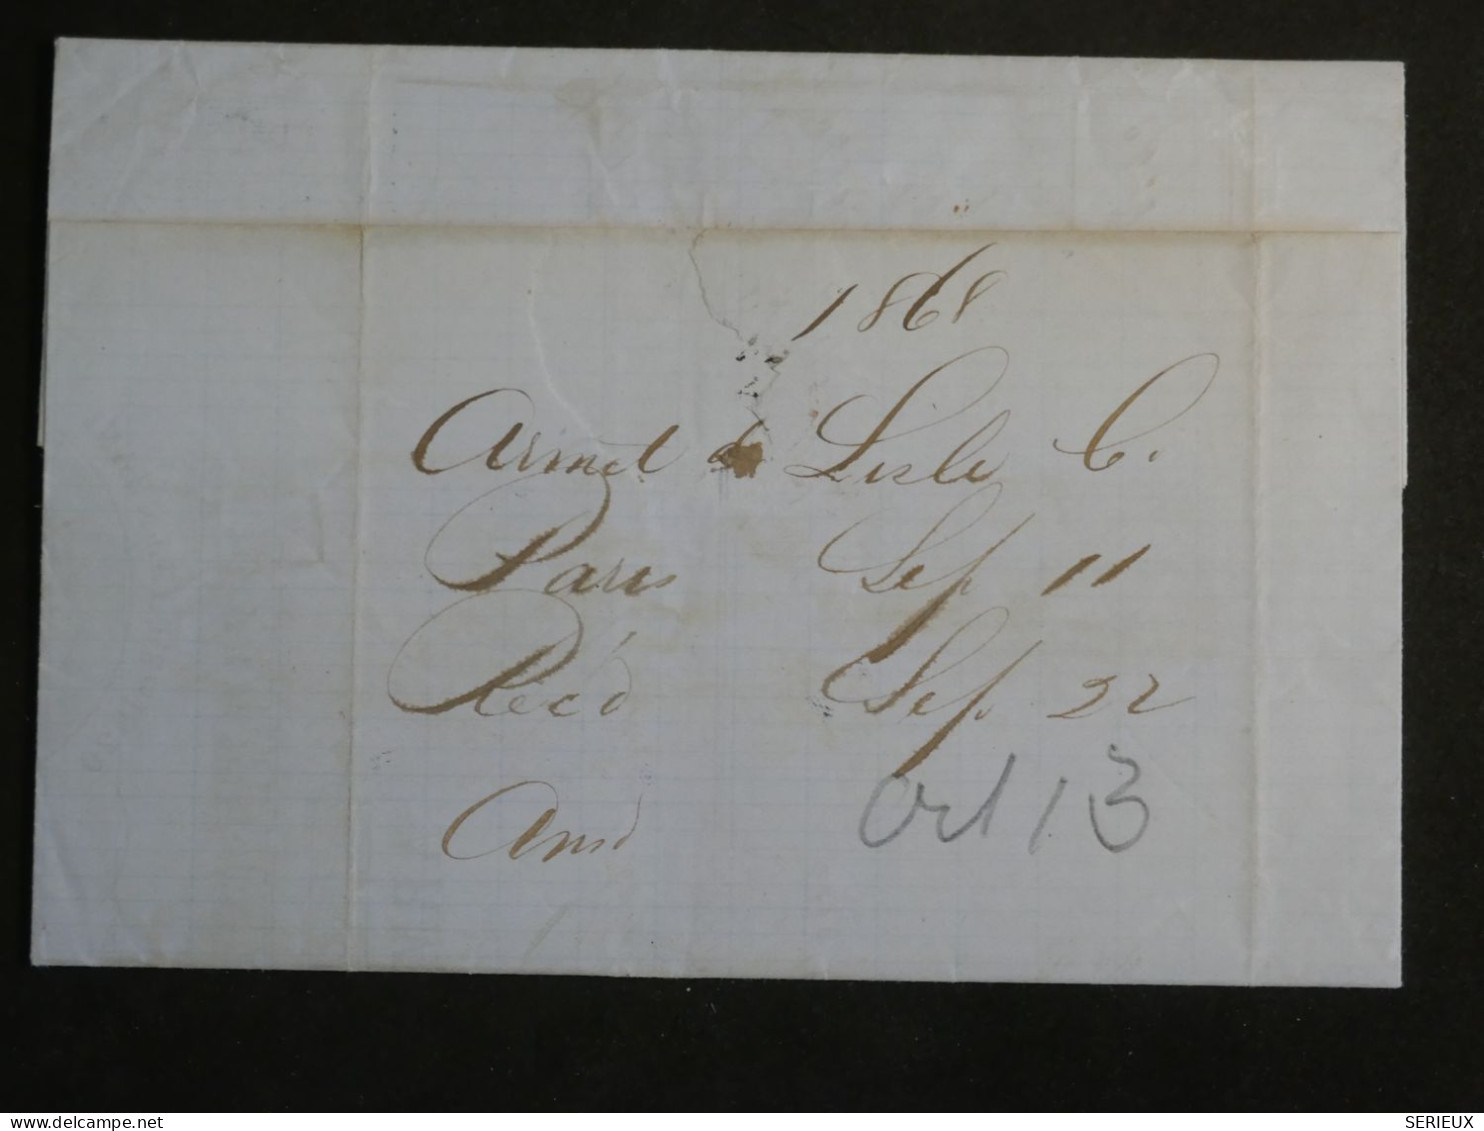 1868
Armet de Lisle C.
Paris Sep 11
Rec'd Sep 22
Ansd Oct 13
delcampe.net
SERIEUX